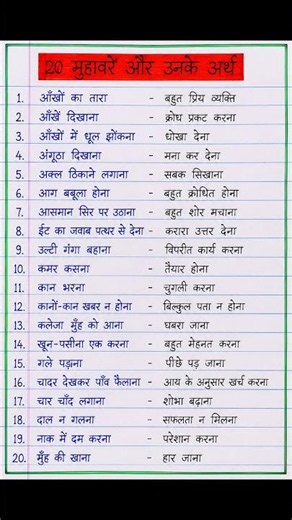 20 मुहावरें और उनके अर्थ
1. आँखों का तारा - बहुत प्रिय व्यक्ति
2. आँखें दिखाना - क्रोध प्रकट करना
3. आँखों में धूल झोंकना - धोखा देना
4. अंगूठा दिखाना - मना कर देना
5. अक्ल ठिकाने लगाना - सबक सिखाना
6. आग बबूला होना - बहुत क्रोधित होना
7. आसमान सिर पर उठाना - बहुत शोर मचाना
8. ईंट का जवाब पत्थर से देना - करारा उत्तर देना
9. उल्टी गंगा बहाना - विपरीत कार्य करना
10. कमर कसना - तैयार होना
11. कान भरना - चुगली करना
12. कानों-कान खबर न होना - बिल्कुल पता न होना
13. कलेजा मुँह को आना - घबरा जाना
14. खून-पसीना एक करना - बहुत मेहनत करना
15. गले पड़ना - पीछे पड़ जाना
16. चादर देखकर पाँव फैलाना - आय के अनुसार खर्च करना
17. चार चाँद लगाना - शोभा बढ़ाना
18. दाल न गलना - सफलता न मिलना
19. नाक में दम करना - परेशान करना
20. मुँह की खाना - हार जाना